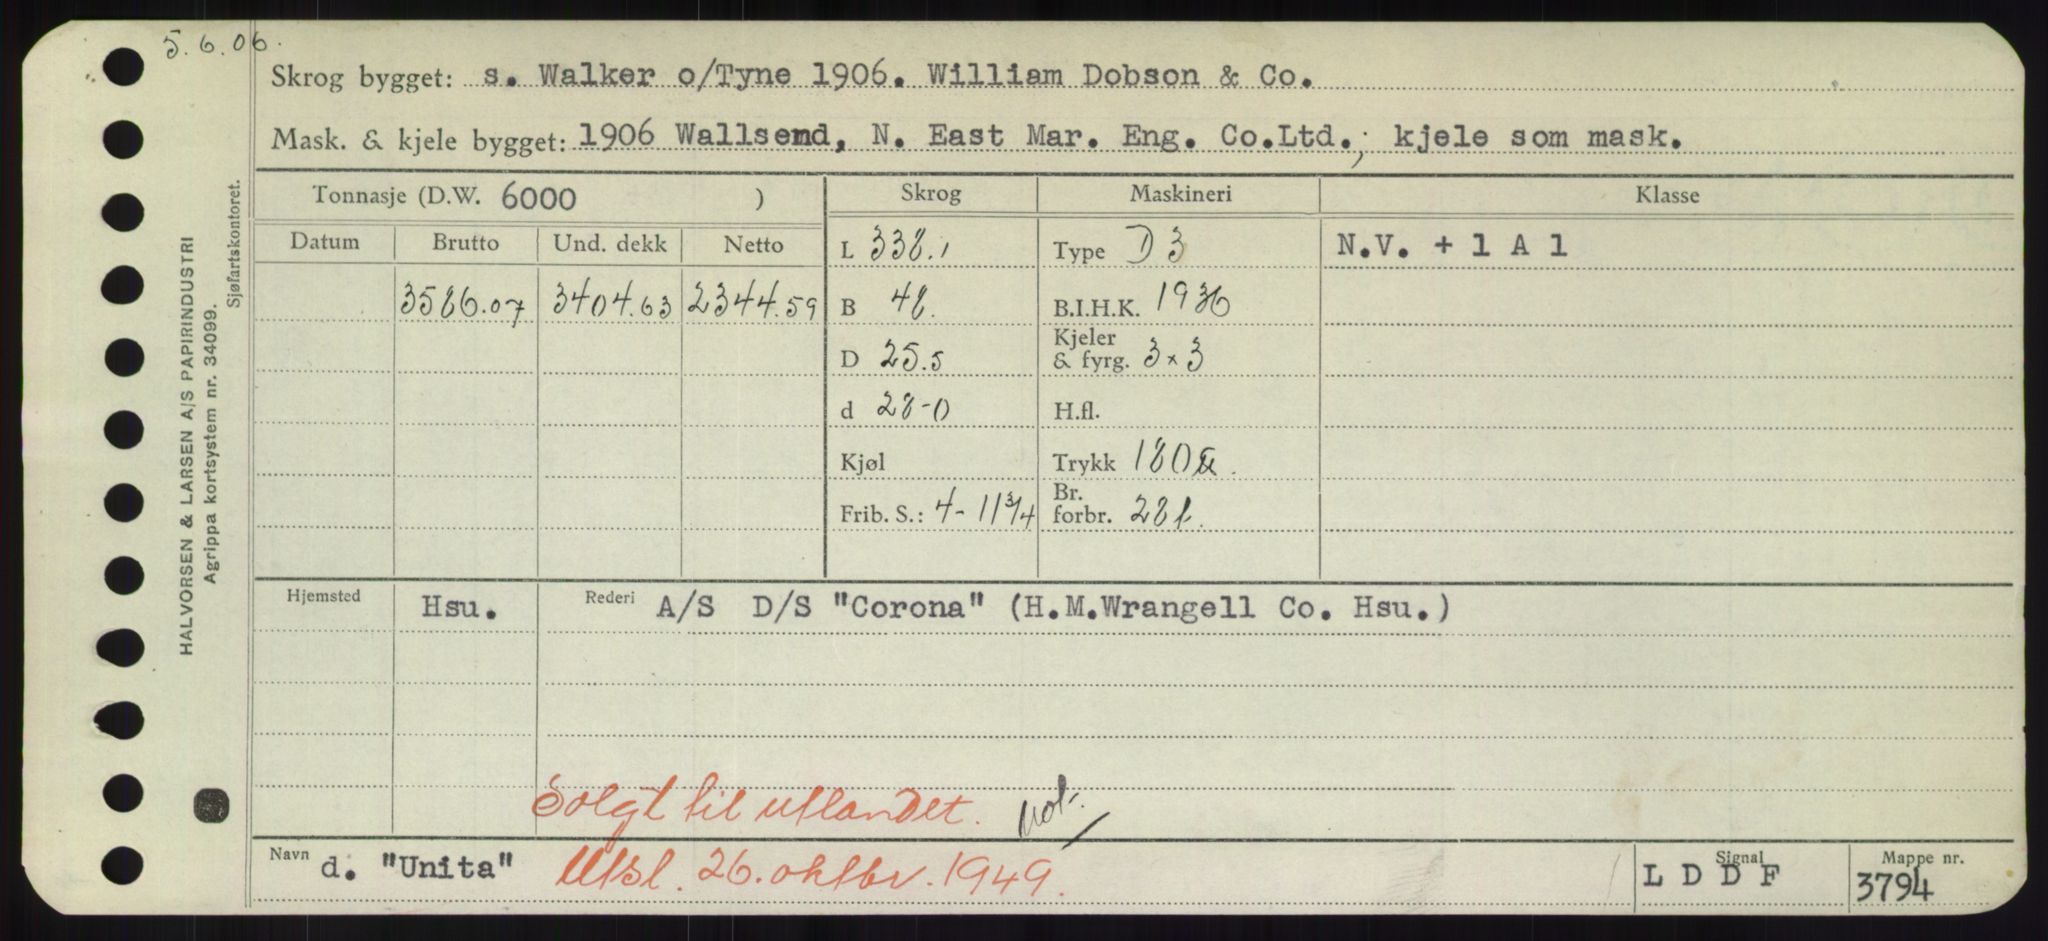 5.6.06.
Skrog bygget: s. Walker o/Tyne 1906. William Dobson & Co.
Mask. & kjele bygget: 1906 Wallsend, N. East Mar. Eng. Co.Ltd., kjele som mask.
Tonnasje (D.W. 6000 ) Skrog Maskineri Klasse
Datum Brutto Und. dekk Netto L 338.1 Type D 3 N.V. + 1 A 1
3586.07 3404.63 2344.59 B 48. B.I.H.K. 1936
D 25.5 Kjeler & fyrg. 3 x 3
d 28-0 H.fl.
Kjøl Trykk 180
Frib. S.: 4-11 3/4 Br. forbr. 28 t.
Hjemsted Hsu. Rederi A/S D/S "Corona" (H.M.Wrangell Co. Hsu.)
Solgt til utlandet. Not.
Navn d. "Unita" Utsl. 26. oktbr. 1949. Signal L D D F Mappe nr. 3794
HALVORSEN & LARSEN A/S PAPIRINDUSTRI
Agrippa kortsystem nr. 34099.
Sjøfartskontoret.